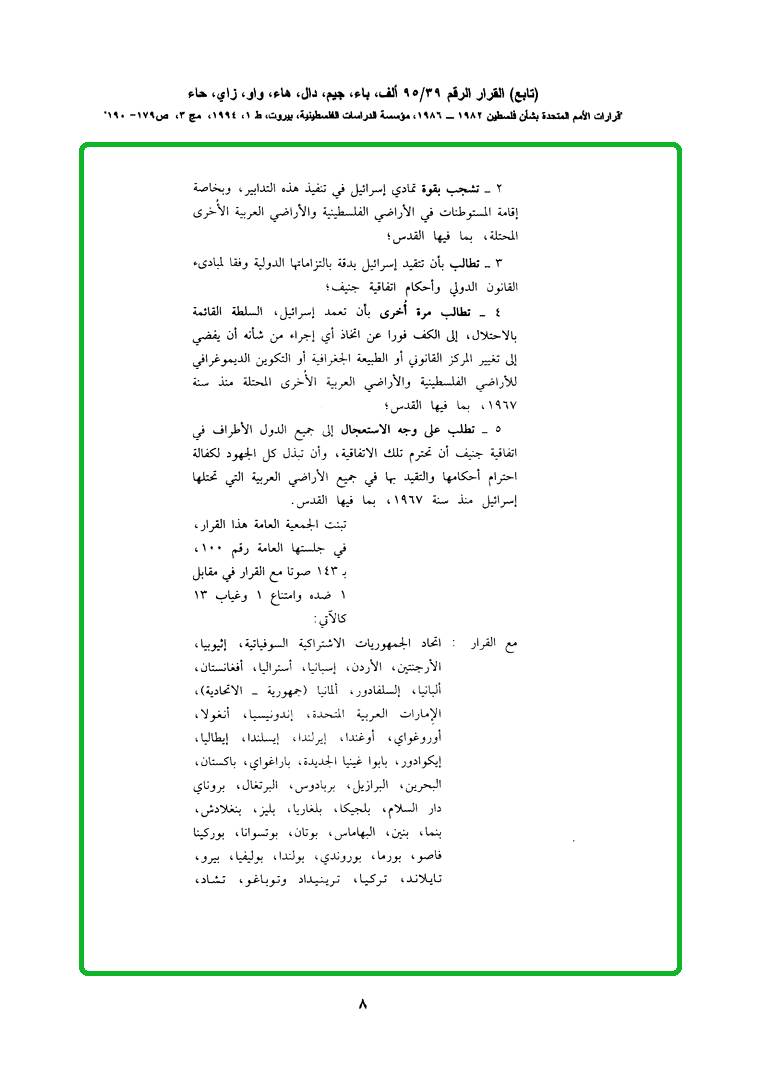 (تابع) القرار الرقم ٩٥/٣٩ ألف، باء، جيم، دال، هاء، واو، زاي، حاء
"قرارات الأمم المتحدة بشأن فلسطين ١٩٨٢ ــ ١٩٨٦، مؤسسة الدراسات الفلسطينية، بيروت، ط ١، ١٩٩٤، مج ٣، ص١٧٩- ١٩٠"
٢ ــ تشجب بقوة تمادي إسرائيل في تنفيذ هذه التدابير، وبخاصة
إقامة المستوطنات في الأراضي الفلسطينية والأراضي العربية الأُخرى
المحتلة، بما فيها القدس؛
٣ ــ تطالب بأن تتقيد إسرائيل بدقة بالتزاماتها الدولية وفقا لمبادىء
القانون الدولي وأحكام اتفاقية جنيف؛
٤ ــ تطالب مرة أُخرى بأن تعمد إسرائيل، السلطة القائمة
بالاحتلال، إلى الكف فورا عن اتخاذ أي إجراء من شأنه أن يفضي
إلى تغيير المركز القانوني أو الطبيعة الجغرافية أو التكوين الديموغرافي
للأراضي الفلسطينية والأراضي العربية الأُخرى المحتلة منذ سنة
١٩٦٧، بما فيها القدس؛
٥ ــ تطلب على وجه الاستعجال إلى جميع الدول الأطراف في
اتفاقية جنيف أن تحترم تلك الاتفاقية، وأن تبذل كل الجهود لكفالة
احترام أحكامها والتقيد بها في جميع الأراضي العربية التي تحتلها
إسرائيل منذ سنة ١٩٦٧، بما فيها القدس.
تبنت الجمعية العامة هذا القرار،
في جلستها العامة رقم ١٠٠،
بـ ١٤٣ صوتا مع القرار في مقابل
١ ضده وامتناع ١ وغياب ١٣
كالآتي:
مع القرار : اتحاد الجمهوريات الاشتراكية السوفياتية، إثيوبيا،
الأرجنتين، الأردن، إسبانيا، أستراليا، أفغانستان،
ألبانيا، إلسلفادور، ألمانيا (جمهورية ــ الاتحادية)،
الإمارات العربية المتحدة، إندونيسيا، أنغولا،
أوروغواي، أوغندا، إيرلندا، إيسلندا، إيطاليا،
إيكوادور، بابوا غينيا الجديدة، باراغواي، باكستان،
البحرين، البرازيل، بربادوس، البرتغال، بروناي
دار السلام، بلجيكا، بلغاريا، بليز، بنغلادش،
بنما، بنين، البهاماس، بوتان، بوتسوانا، بوركينا
فاصو، بورما، بوروندي، بولندا، بوليفيا، بيرو،
تايلاند، تركيا، ترينيداد وتوباغو، تشاد،
٨